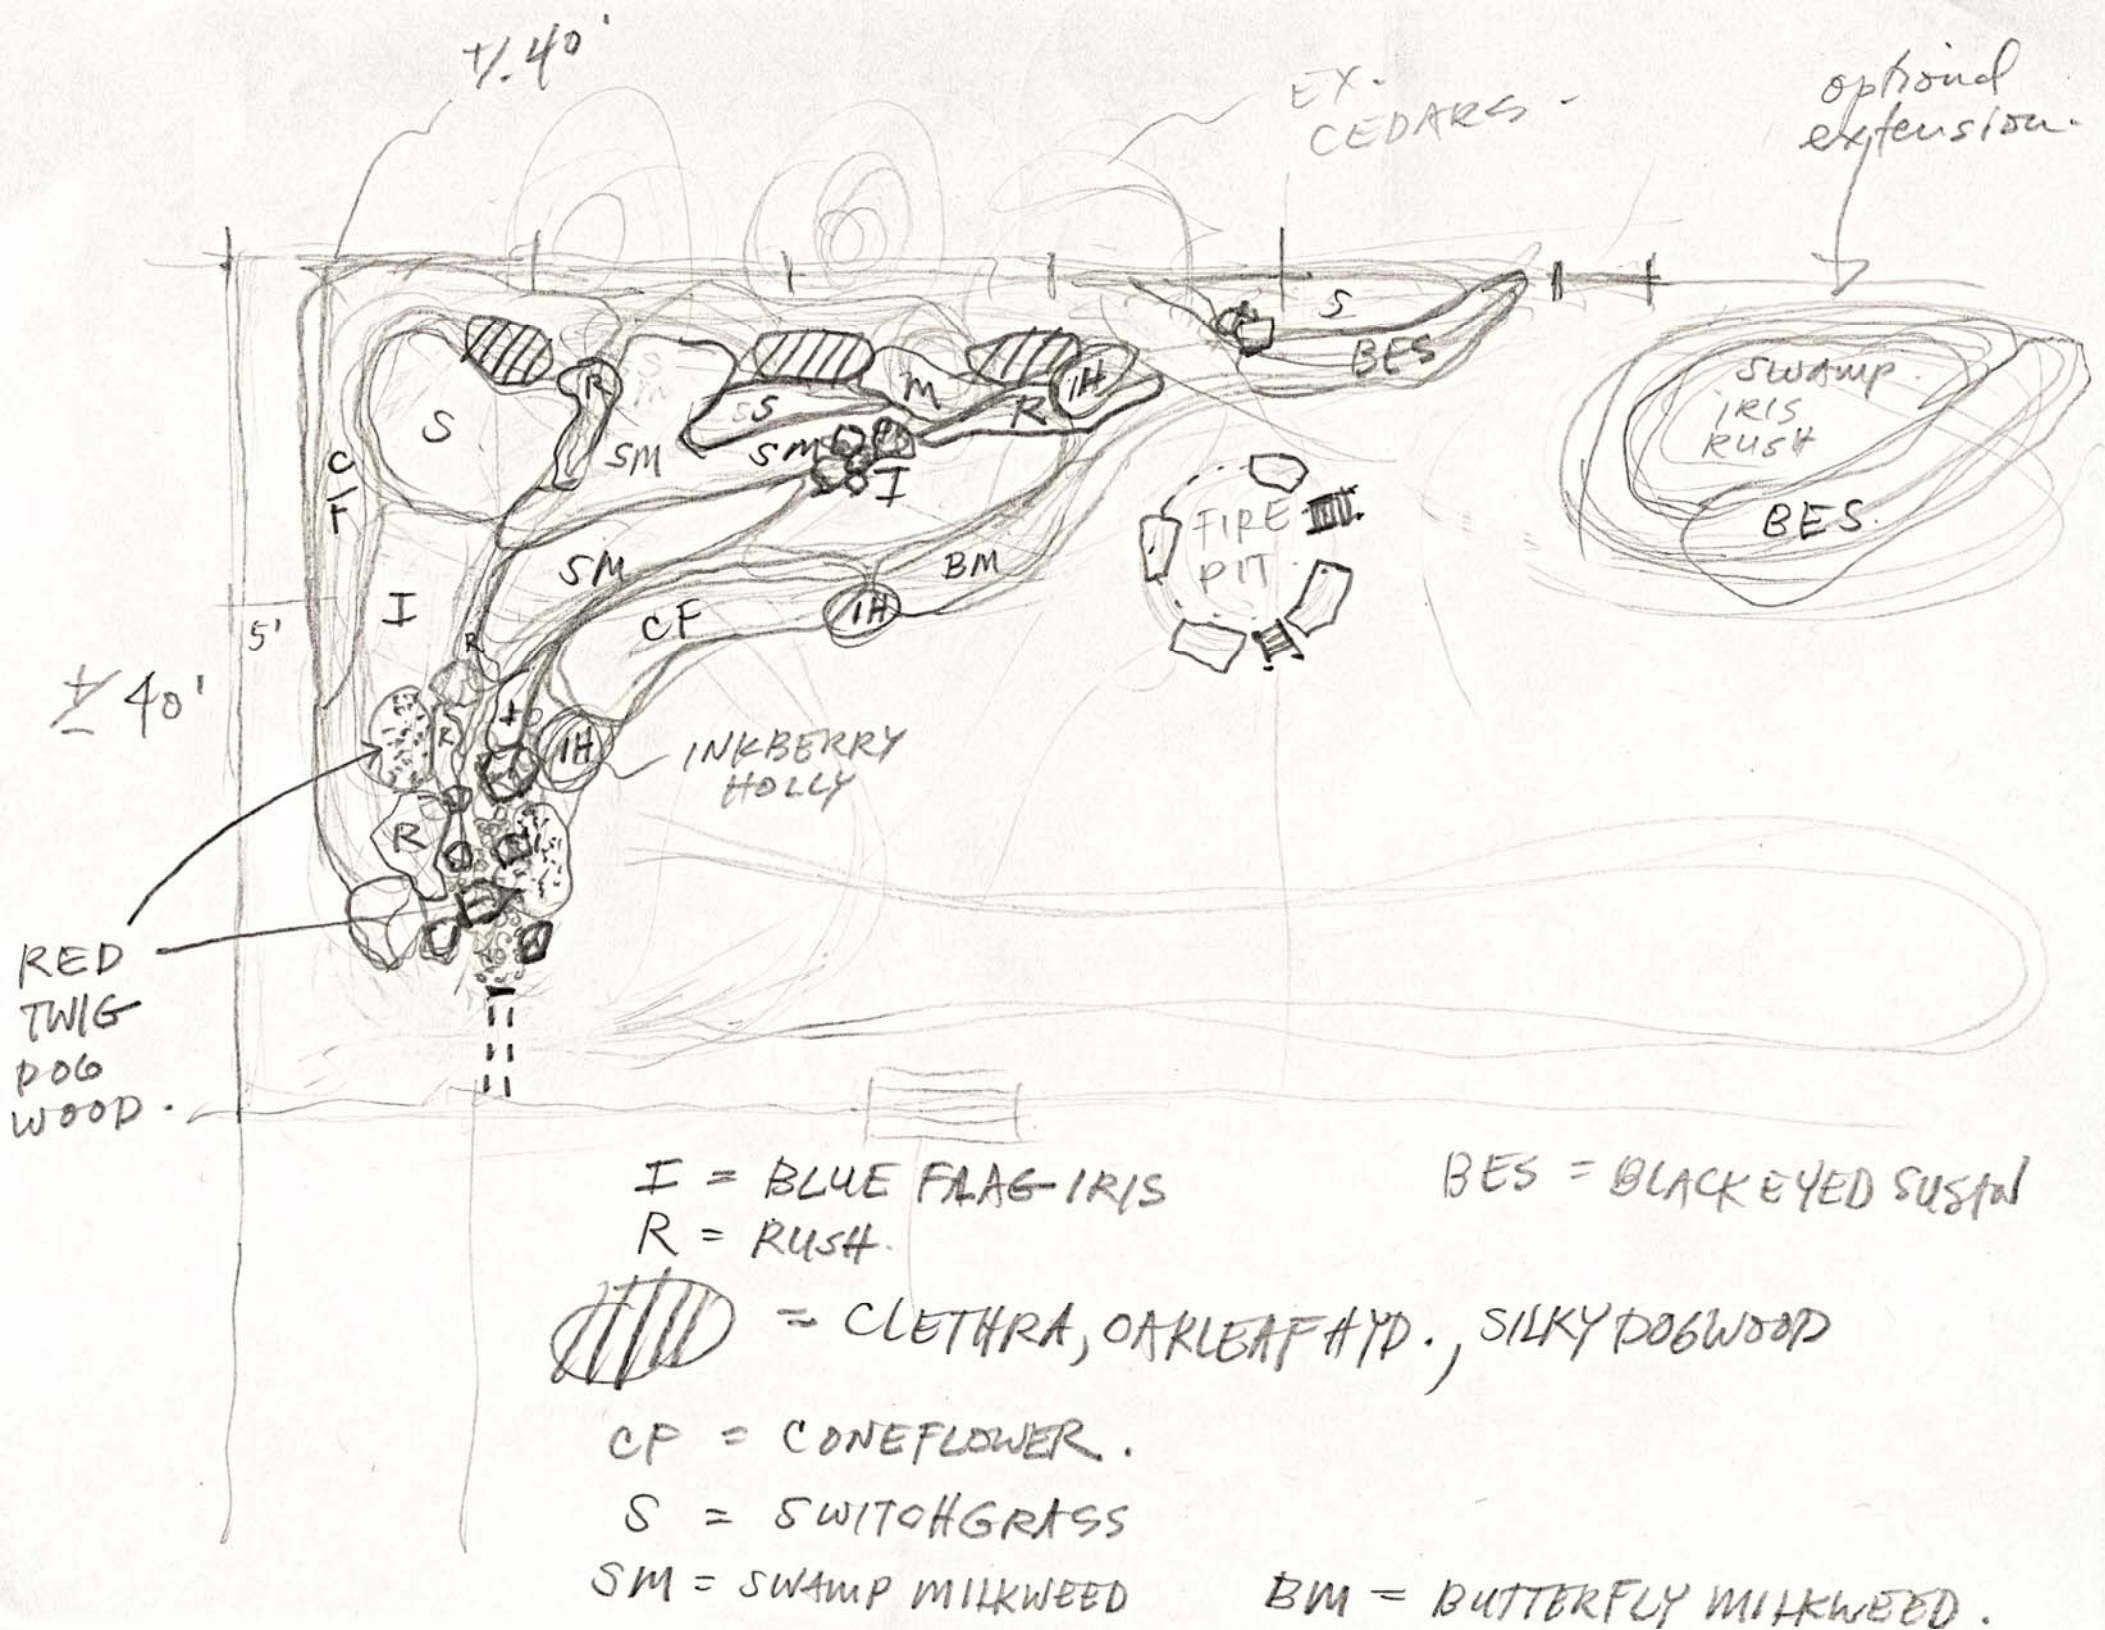 +/. 40'
EX.
CEDARS.
optional
extension.
S
BES
R
M
IH
SS
R
S
SM
SM
I
CF
SWAMP
IRIS
RUSH
BES.
FIRE
PIT.
SM
BM
I
IH
CF
5'
R
± 40'
R
IH
INKBERRY
HOLLY
R
RED
TWIG
DOG
WOOD.
I = BLUE FLAG IRIS
BES = BLACK EYED SUSAN
R = RUSH.
= CLETHRA, OAKLEAF HYD., SILKY DOGWOOD
CF = CONEFLOWER.
S = SWITCHGRASS
SM = SWAMP MILKWEED
BM = BUTTERFLY MILKWEED.